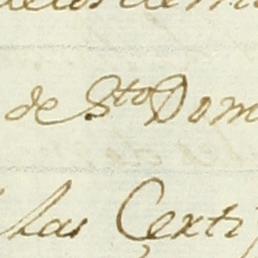 de Sto Dom
las Çerti